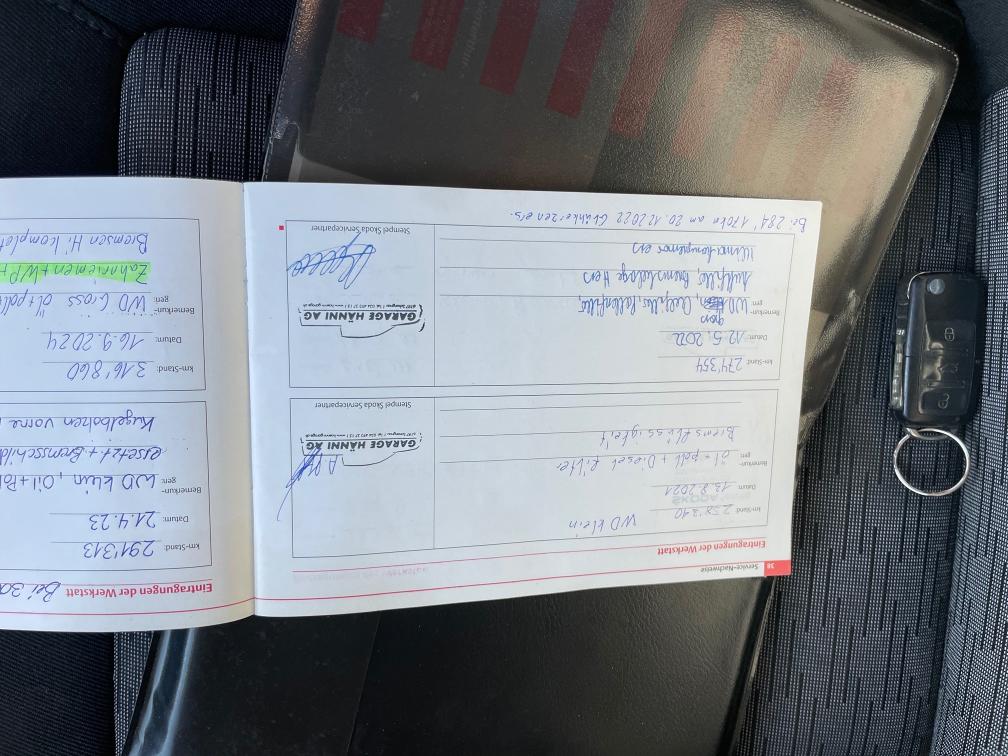 38 Service-Nachweise
Eintragungen der Werkstatt
km-Stand: WD klein
Datum: 13.8.2021
Bemerkun-
gen: Öl + poll + Diesel filter
Bremsflüssigkeit
GARAGE HÄNNI AG
Stempel Skoda Servicepartner
km-Stand: 274'354
Datum: 12.5.2022
gross
Bemerkun-
gen: WD Oelfilter, Pollenfilter
Luftfilter, Bremsbeläge
GARAGE HÄNNI AG
Stempel Skoda Servicepartner
Bei 284'170km am 20.12.2022 Glühkerzen ers.
Eintragungen der Werkstatt Bei
km-Stand: 291'313
Datum: 21.4.23
Bemerkun-
gen: WD klein, Öil+Pol
ersetzt + Bremsschild
Kugelbolzen vorne
km-Stand: 316'860
Datum: 16.9.2024
Bemerkun-
gen: WD Gross öl+poll
Zahnriemen+WP+
Bremsen Hi. komplet